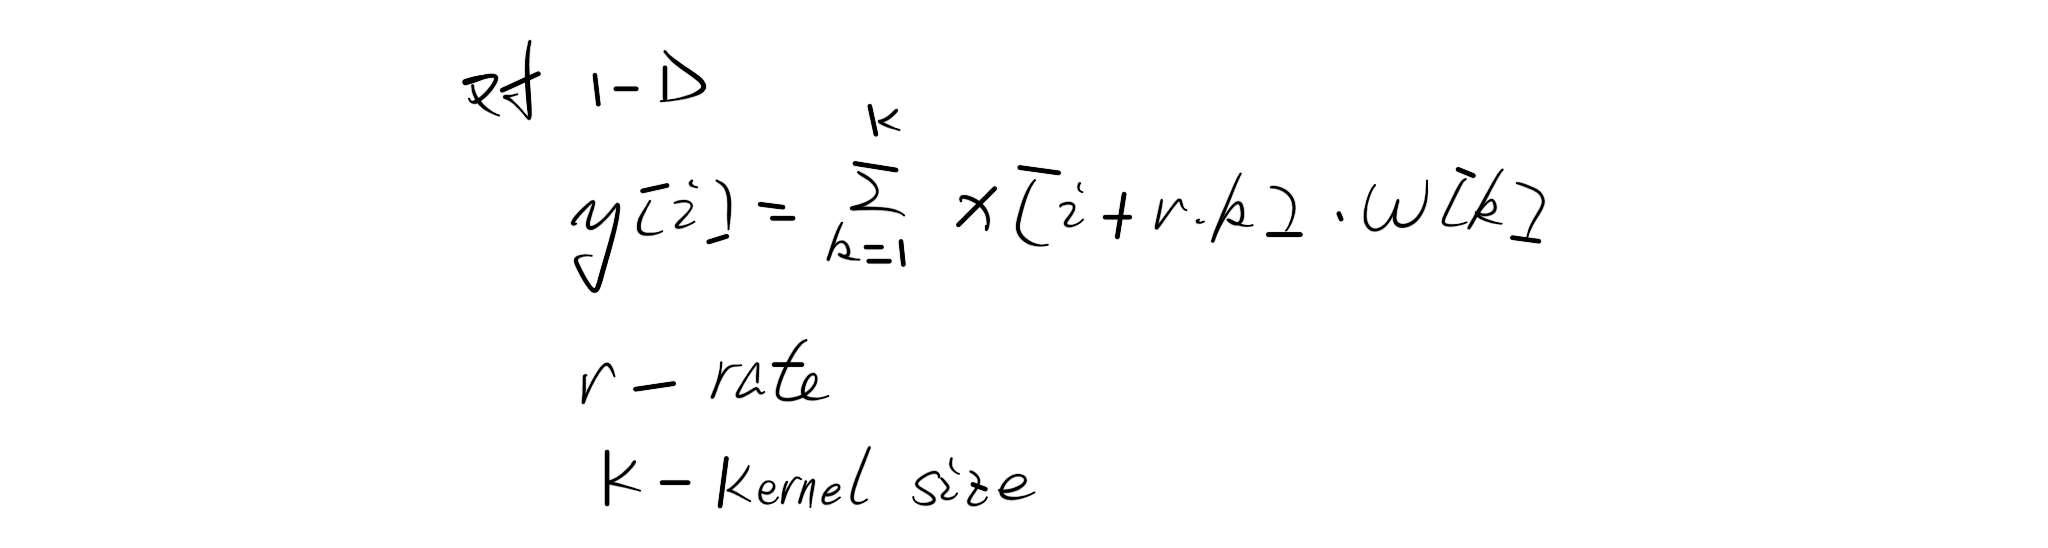 对 1-D
y[i] = ∑_{k=1}^{K} x[i+r·k]·w[k]
r - rate
K - Kernel size